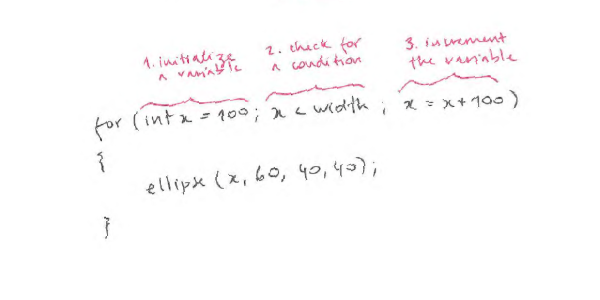 1. initialize
a variable
2. check for
a condition
3. increment
the variable
for (int x = 100; x < width ; x = x+100)
{
ellipse (x, 60, 40, 40);
}